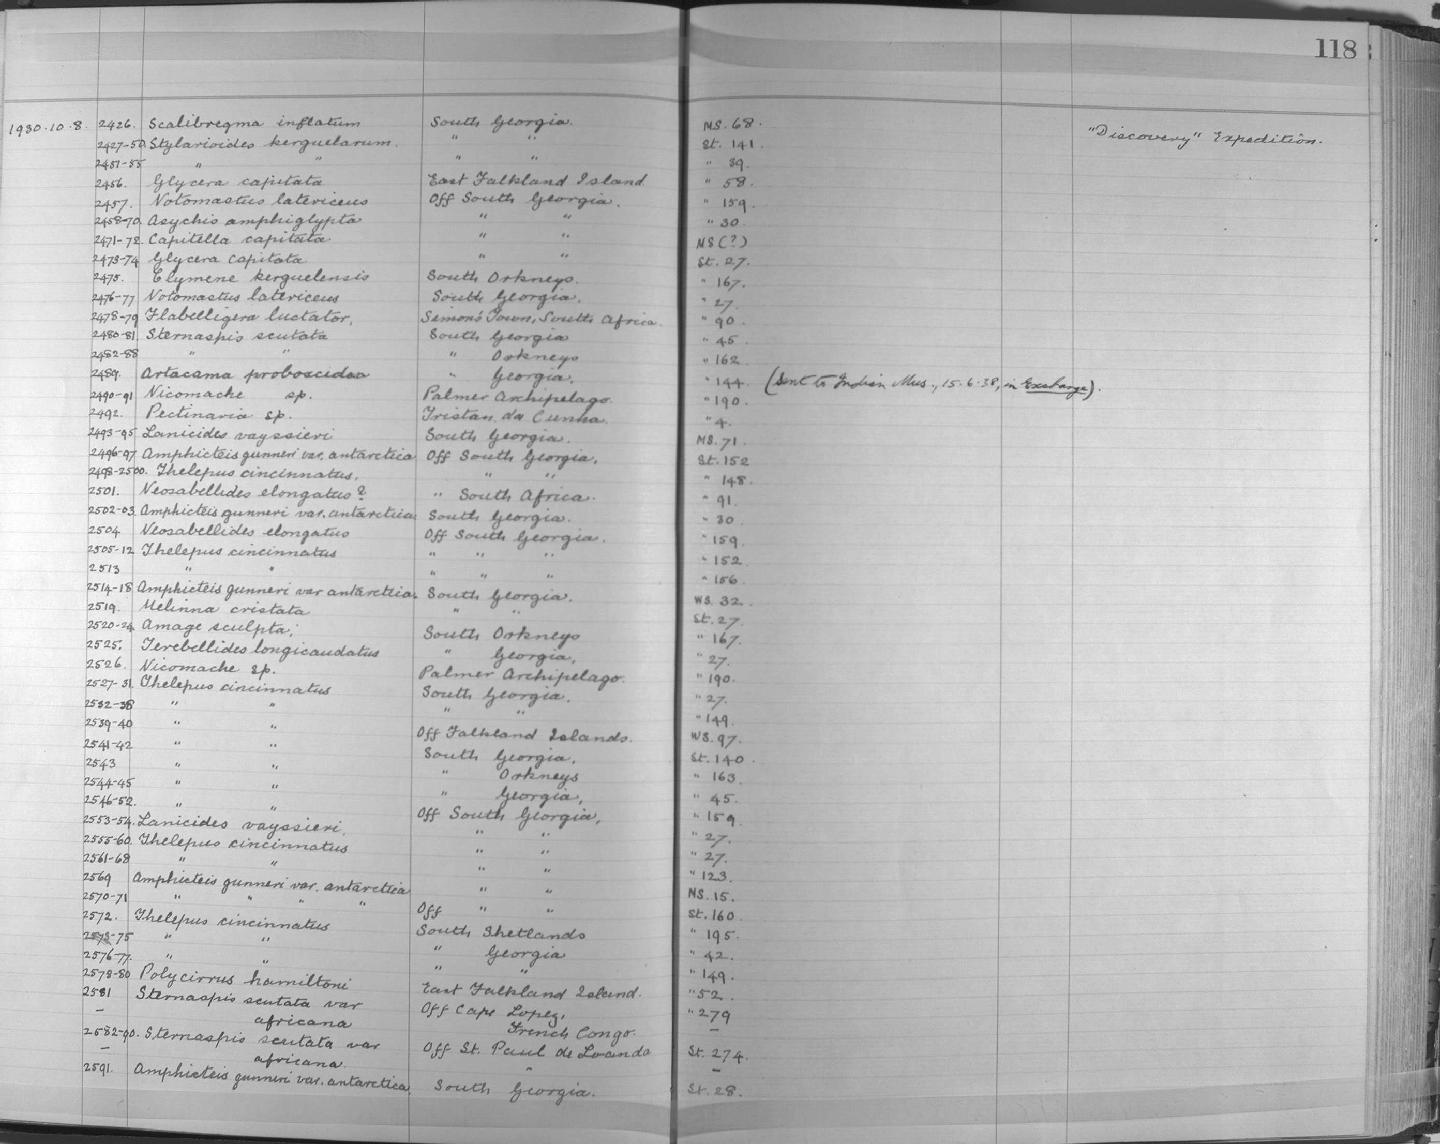 118
1930.10.8. 2426. Scalibregma inflatum South Georgia. MS. 68. "Discovery" Expedition.
2427-50. Stylarioides kerguelarum. " " St. 141.
2451-55 " " " " " 39.
2456. Glycera capitata East Falkland Island " 58.
2457. Notomastus latericeus Off South Georgia. " 159.
2458-70. Asychis amphiglypta " " " 30.
2471-72. Capitella capitata " " MS (?)
2473-74 Glycera capitata " " St. 27.
2475. Clymene kerguelensis South Orkneys. " 167.
2476-77 Notomastus latericeus South Georgia. " 27.
2478-79 Flabelligera luctator, Semon's Town, South Africa. " 90
2480-81. Sternaspis scutata South Georgia " 45
2482-88 " " " Orkneys " 162
2489. Artacama proboscidea " Georgia. " 144. (Sent to Indian Mus., 15.6.38, in Exchange).
2490-91 Nicomache sp. Palmer Archipelago. " 190.
2492. Pectinaria sp. Tristan da Cunha. " 4.
2493-95 Lanicides vayssieri South Georgia. MS. 71
2496-97 Amphicteis gunneri var. antarctica Off South Georgia. St. 152
2498-2500. Thelepus cincinnatus. " " " 148.
2501. Neosabellides elongatus? " South Africa. " 91.
2502-03. Amphicteis gunneri var. antarctica South Georgia. " 30
2504 Neosabellides elongatus Off South Georgia. " 159.
2505-12 Thelepus cincinnatus " " " " 152.
2513 " " " " " " 156
2514-18 Amphicteis gunneri var antarctica. South Georgia. WS. 32.
2519. Melinna cristata " " St. 27.
2520-24 Amage sculpta; South Orkneys " 167.
2525. Terebellides longicaudatus " Georgia, " 27.
2526. Nicomache sp. Palmer Archipelago. " 190.
2527-31. Thelepus cincinnatus South Georgia. " 27.
2532-38 " " " " " 149.
2539-40 " " Off Falkland Islands. WS. 97.
2541-42 " " South Georgia. St. 140.
2543 " " " Orkneys " 163.
2544-45 " " " Georgia, " 45.
2546-52. " " Off South Georgia, " 159.
2553-54. Lanicides vayssieri. " " " 27.
2555-60. Thelepus cincinnatus " " " 27.
2561-68 " " " " " 123.
2569 Amphicteis gunneri var. antarctica " " MS. 15.
2570-71 " " " " Off " " St. 160.
2572. Thelepus cincinnatus South Shetlands " 195.
2573-75 " " " Georgia " 42.
2576-77. " " " " " 149.
2578-80 Polycirrus hamiltoni East Falkland Island. " 52.
2581 Sternaspis scutata var Off Cape Lopez, " 279
– africana French Congo. –
2582-90. Sternaspis scutata var Off St. Paul de Loanda St. 274.
– africana. " –
2591. Amphicteis gunneri var. antarctica. South Georgia. St. 28.